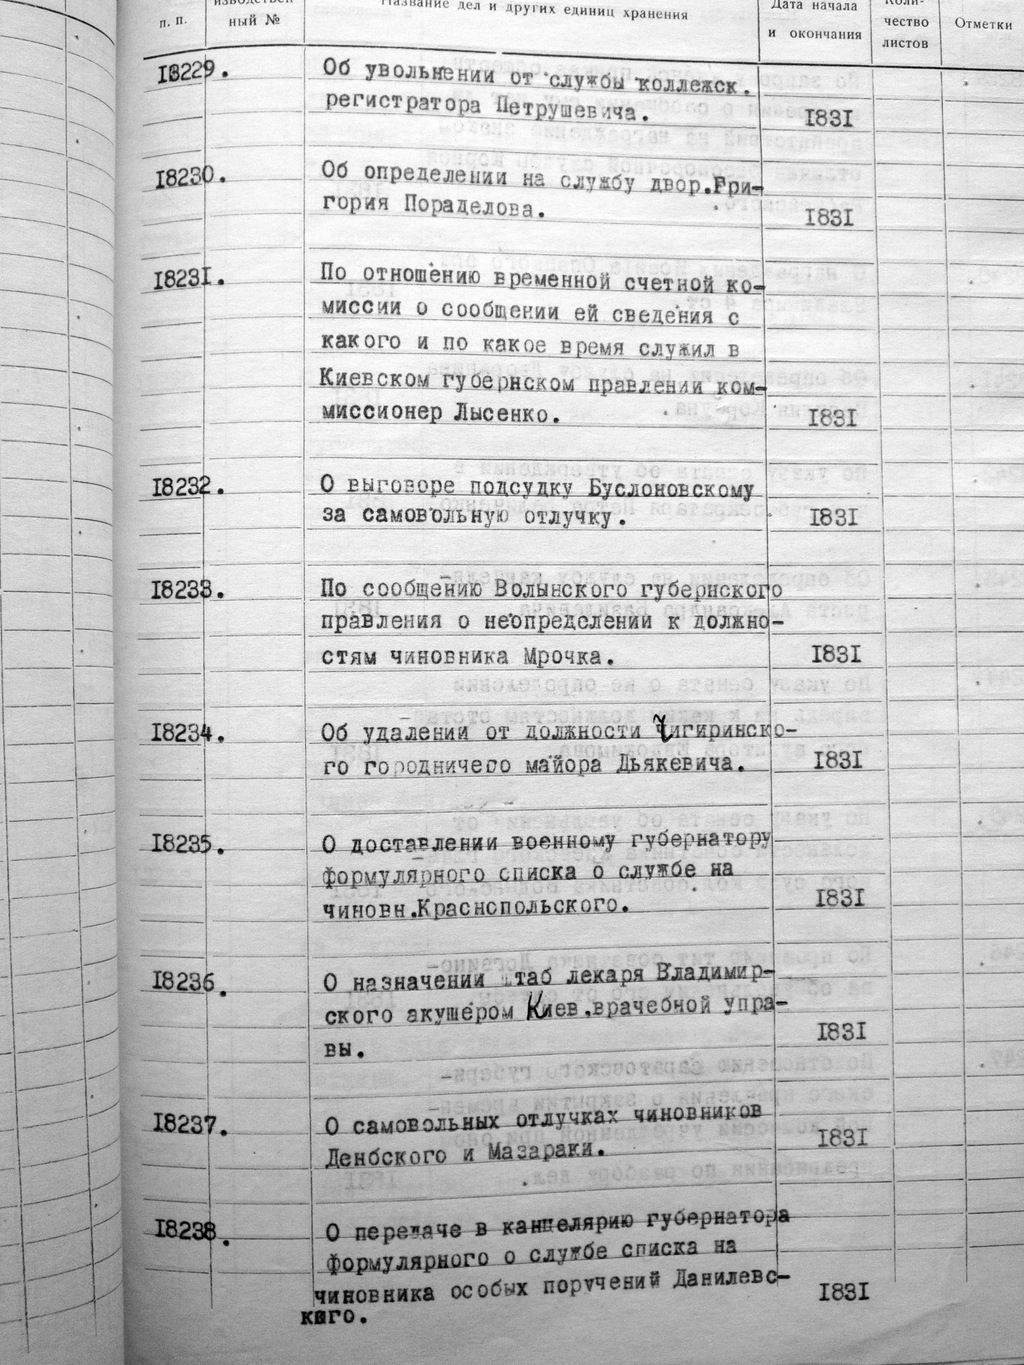 п. п.
ный №
Название дел и других единиц хранения
Дата начала
и окончания
чество
листов
Отметки
18229.
Об увольнении от службы коллежск.
регистратора Петрушевича.
1831
18230.
Об определении на службу двор.Гри-
гория Пораделова.
1831
18231.
По отношению временной счетной ко-
миссии о сообщении ей сведения с
какого и по какое время служил в
Киевском губернском правлении ком-
миссионер Лысенко.
1831
18232.
О выговоре подсудку Буслоновскому
за самовольную отлучку.
1831
18233.
По сообщению Волынского губернского
правления о неопределении к должно-
стям чиновника Мрочка.
1831
18234.
Об удалении от должности Чигиринско-
го городничего майора Дьякевича.
1831
18235.
О доставлении военному губернатору
формулярного списка о службе на
чиновн.Краснопольского.
1831
18236.
О назначении штаб лекаря Владимир-
ского акушером Киев.врачебной упра-
вы.
1831
18237.
О самовольных отлучках чиновников
Денбского и Мазараки.
1831
18238.
О передаче в канцелярию губернатора
формулярного о службе списка на
чиновника особых поручений Данилевс-
кого.
1831